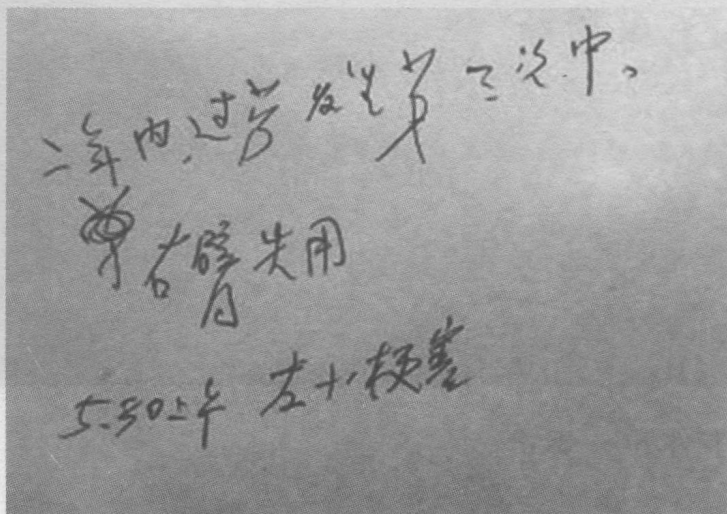 二年内,过劳发生第三次中。
右臂失用
5.30上午 左小梗塞